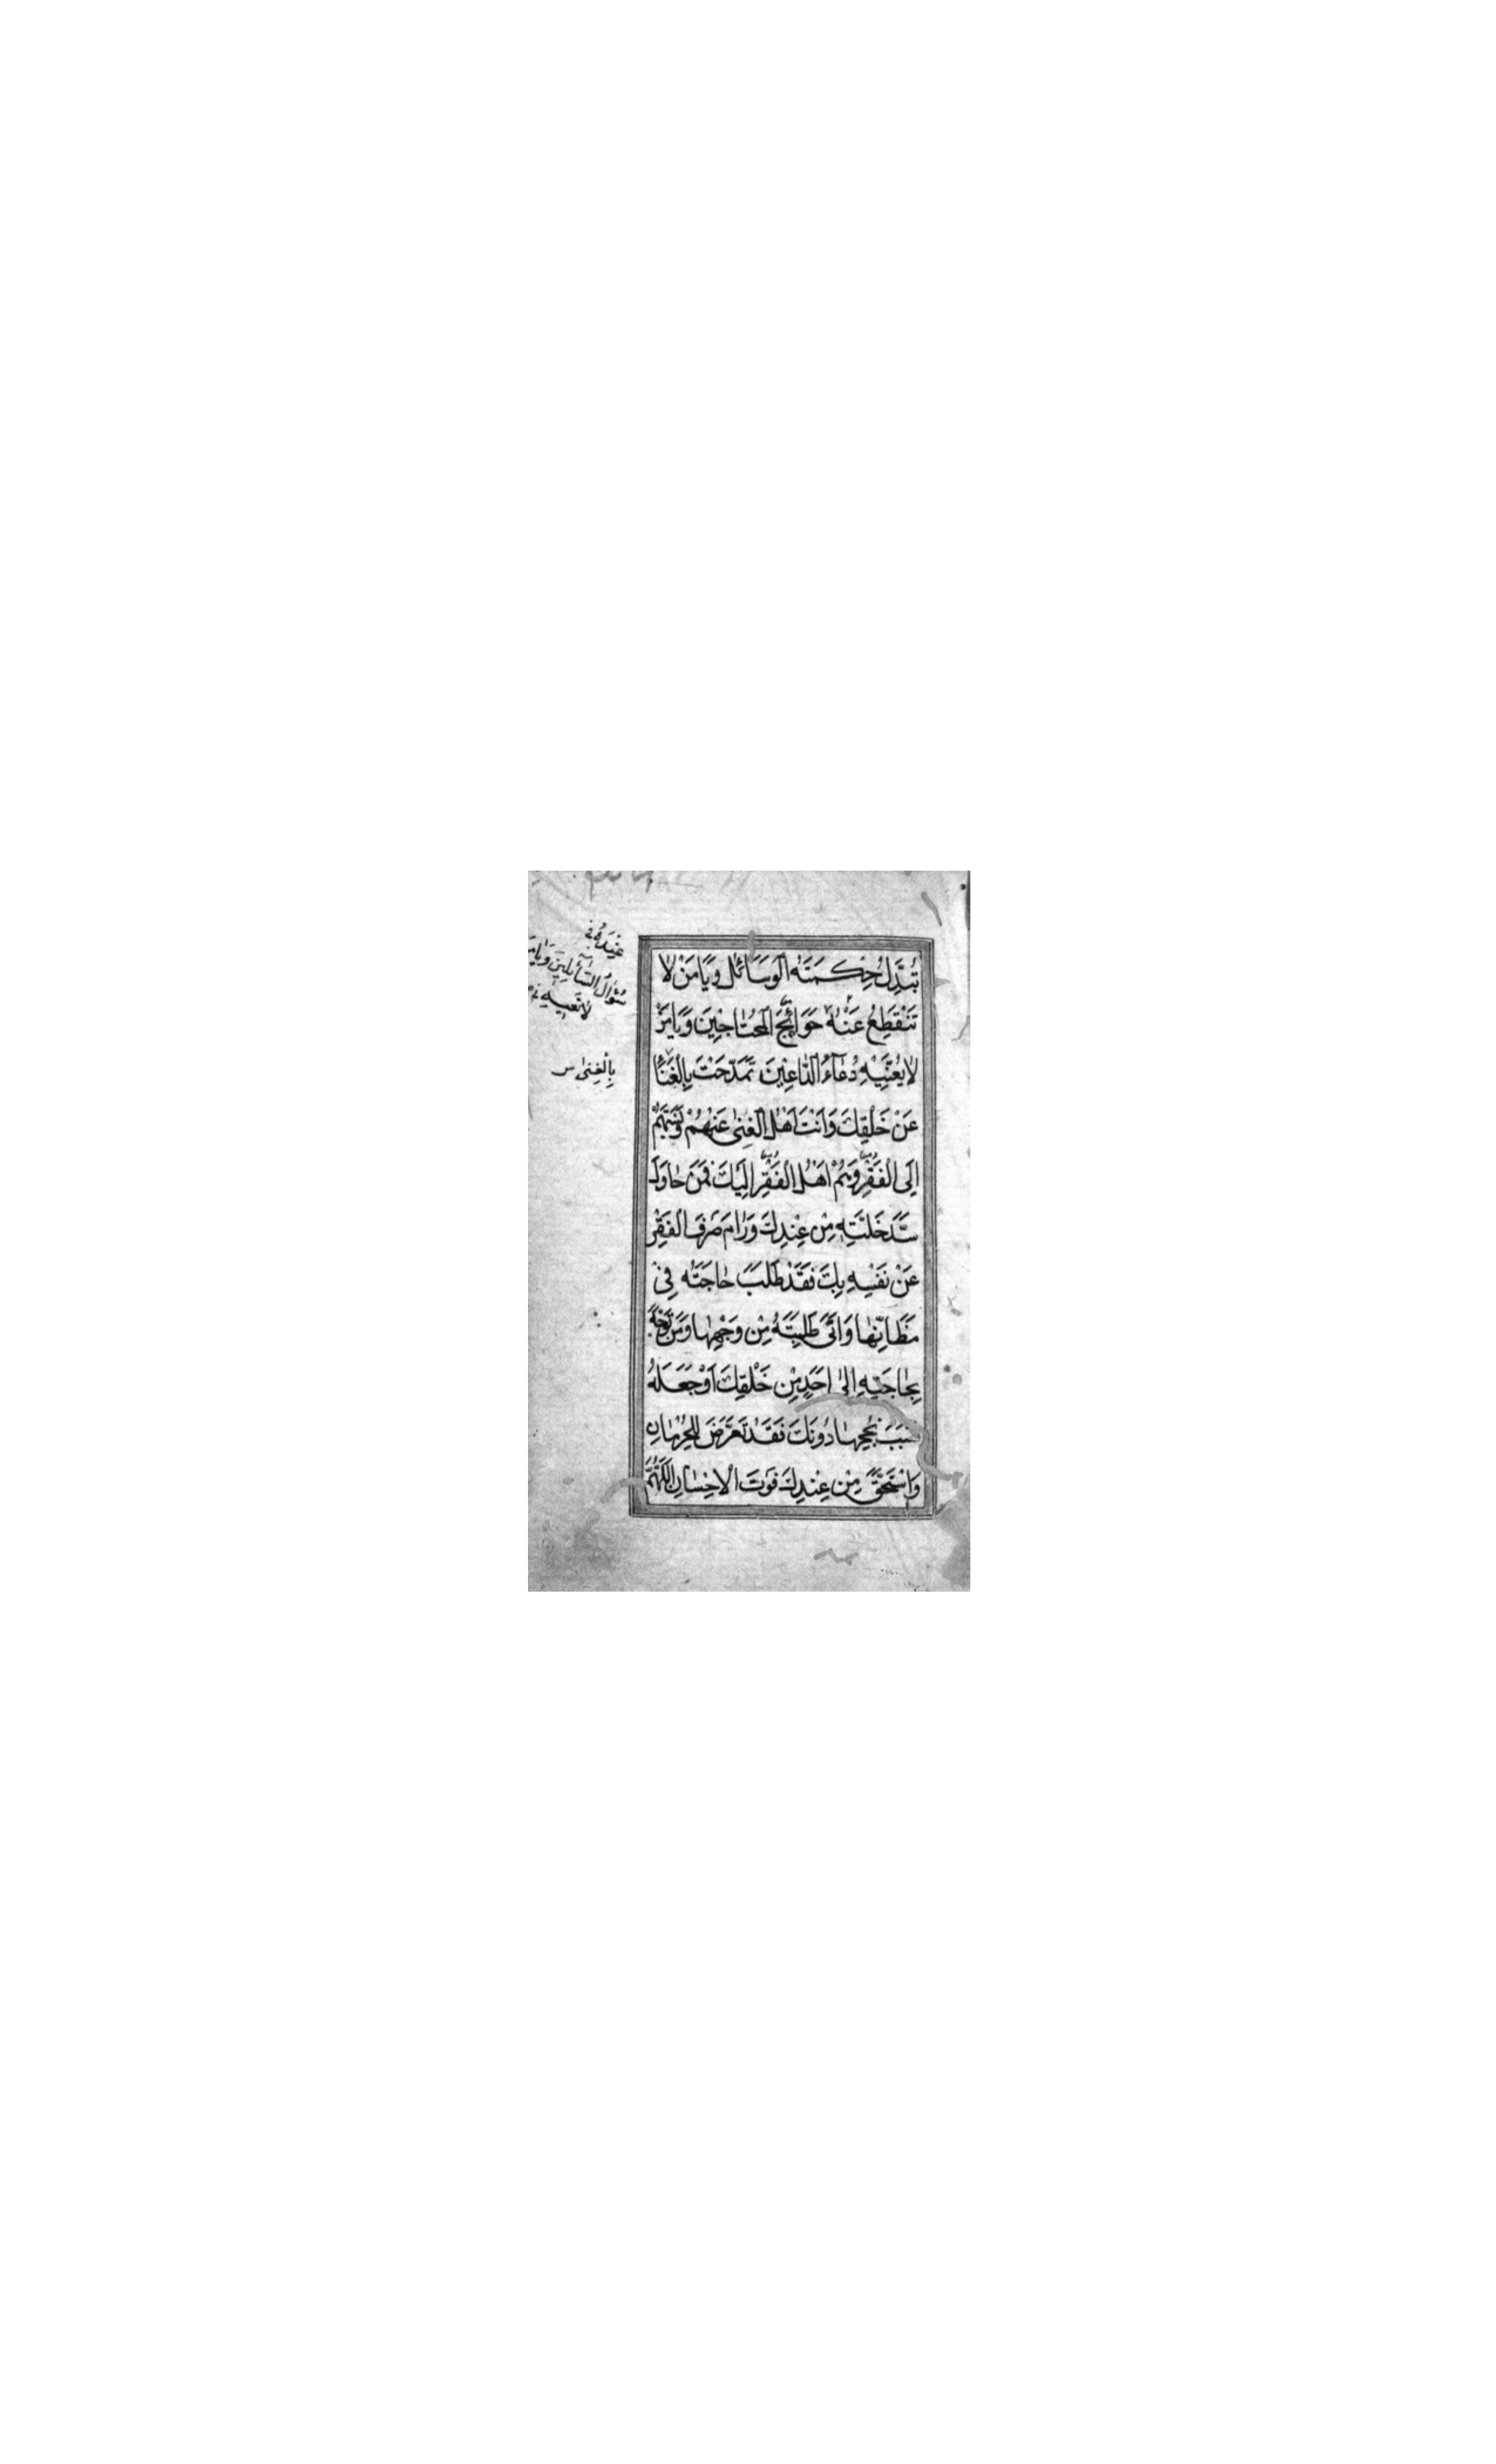 تُبَدِّلُ حِكْمَتَهُ الْوَسَائِلُ وَيَا مَنْ لَا
تَنْقَطِعُ عَنْهُ حَوَائِجُ الْمُحْتَاجِينَ وَيَا مَنْ
لَا يُعَنِّيهِ دُعَاءُ الدَّاعِينَ تَمَدَّحْتَ بِالْغَنَاءِ
عَنْ خَلْقِكَ وَأَنْتَ أَهْلُ الْغِنَى عَنْهُمْ وَنَسَبْتَهُمْ
إِلَى الْفَقْرِ وَهُمْ أَهْلُ الْفَقْرِ إِلَيْكَ فَمَنْ حَاوَلَ
سَدَّ خَلَّتِهِ مِنْ عِنْدِكَ وَرَامَ صَرْفَ الْفَقْرِ
عَنْ نَفْسِهِ بِكَ فَقَدْ طَلَبَ حَاجَتَهُ فِي
مَظَانِّهَا وَأَتَى طَلِبَتَهُ مِنْ وَجْهِهَا وَمَنْ تَوَجَّهَ
بِحَاجَتِهِ إِلَى أَحَدٍ مِنْ خَلْقِكَ أَوْ جَعَلَهُ
سَبَبَ نُجْحِهَا دُونَكَ فَقَدْ تَعَرَّضَ لِلْحِرْمَانِ
وَاسْتَحَقَّ مِنْ عِنْدِكَ فَوْتَ الْإِحْسَانِ اللَّهُمَّ
سُؤَالُ السَّائِلِينَ وَيَا مَنْ
بِالْغِنَى س